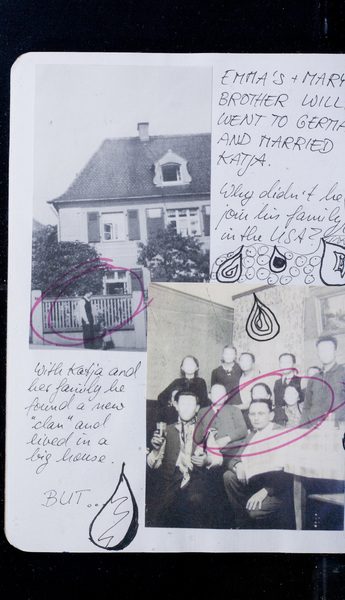 EMMA'S + MARY
BROTHER WILL
WENT TO GERMA
AND MARRIED
KATJA.
Why didn't he
join his family
in the USA?
With Katja and
her family he
found a new
"clan" and
lived in a
big house.
BUT...